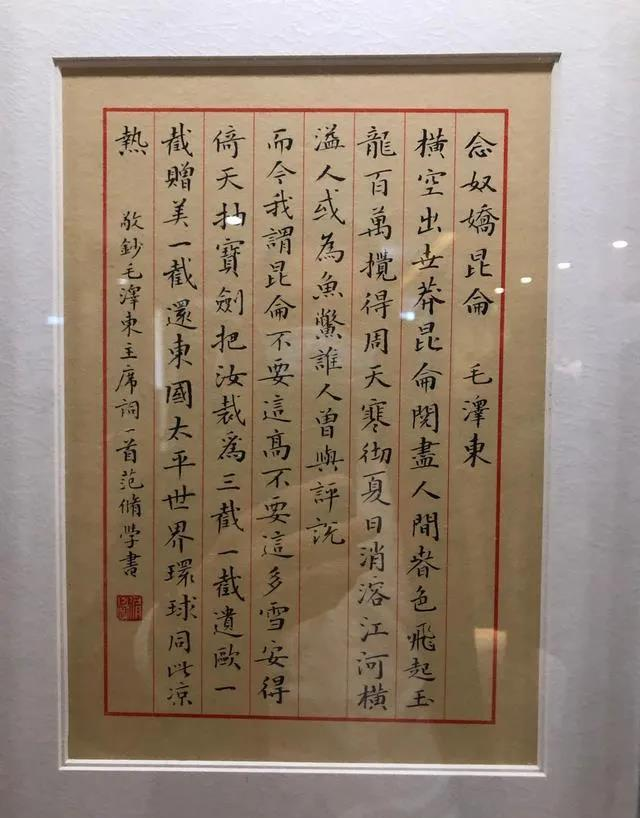 念奴嬌昆侖 毛澤東
橫空出世莽昆侖閱盡人間春色飛起玉
龍百萬攪得周天寒徹夏日消溶江河橫
溢人或為魚鱉誰人曾與評說
而今我謂昆侖不要這高不要這多雪安得
倚天抽寶劍把汝裁為三截一截遺歐一
截贈美一截還東國太平世界環球同此涼
熱 敬鈔毛澤東主席詞一首范脩學書